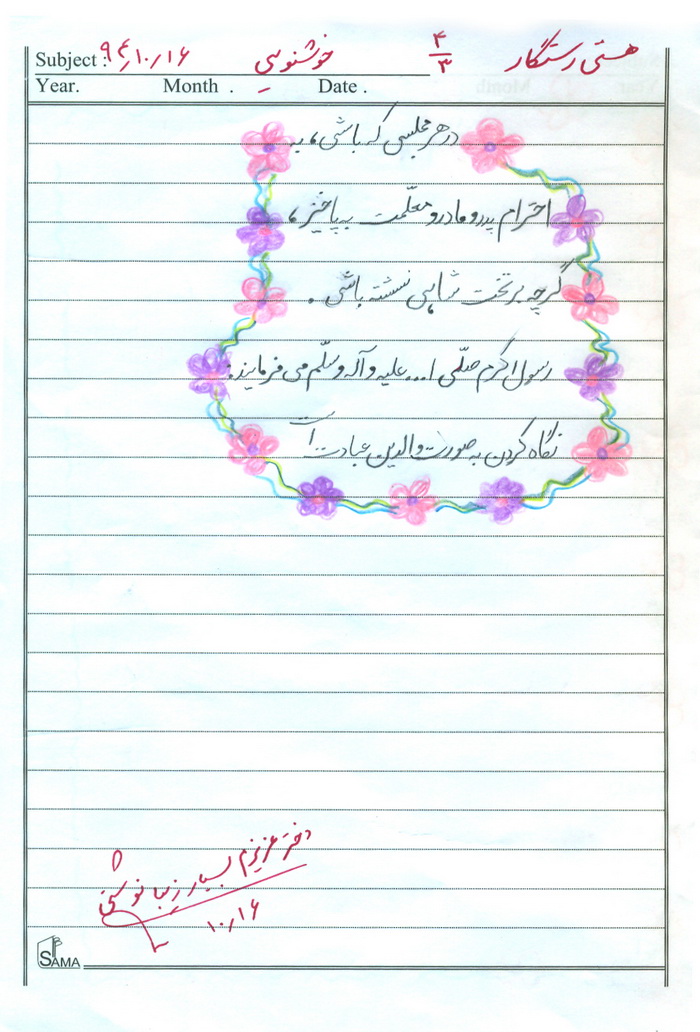 هستی رستگار ۴/۳ خوشنویسی Subject : ۹۴/۱۰/۱۶
Year. Month . Date .
در هر مجلسی که باشی، به
احترام پدر و مادر و معلّمت به پاخیز،
گرچه بر تخت شاهی نشسته باشی .
رسول اکرم صلّی ا... علیه و آله وسلّم می فرمایند:
نگاه کردن به صورت والدین عبادت است
دختر عزیزم بسیار زیبا نوشتی
۱۰/۱۶
SAMA